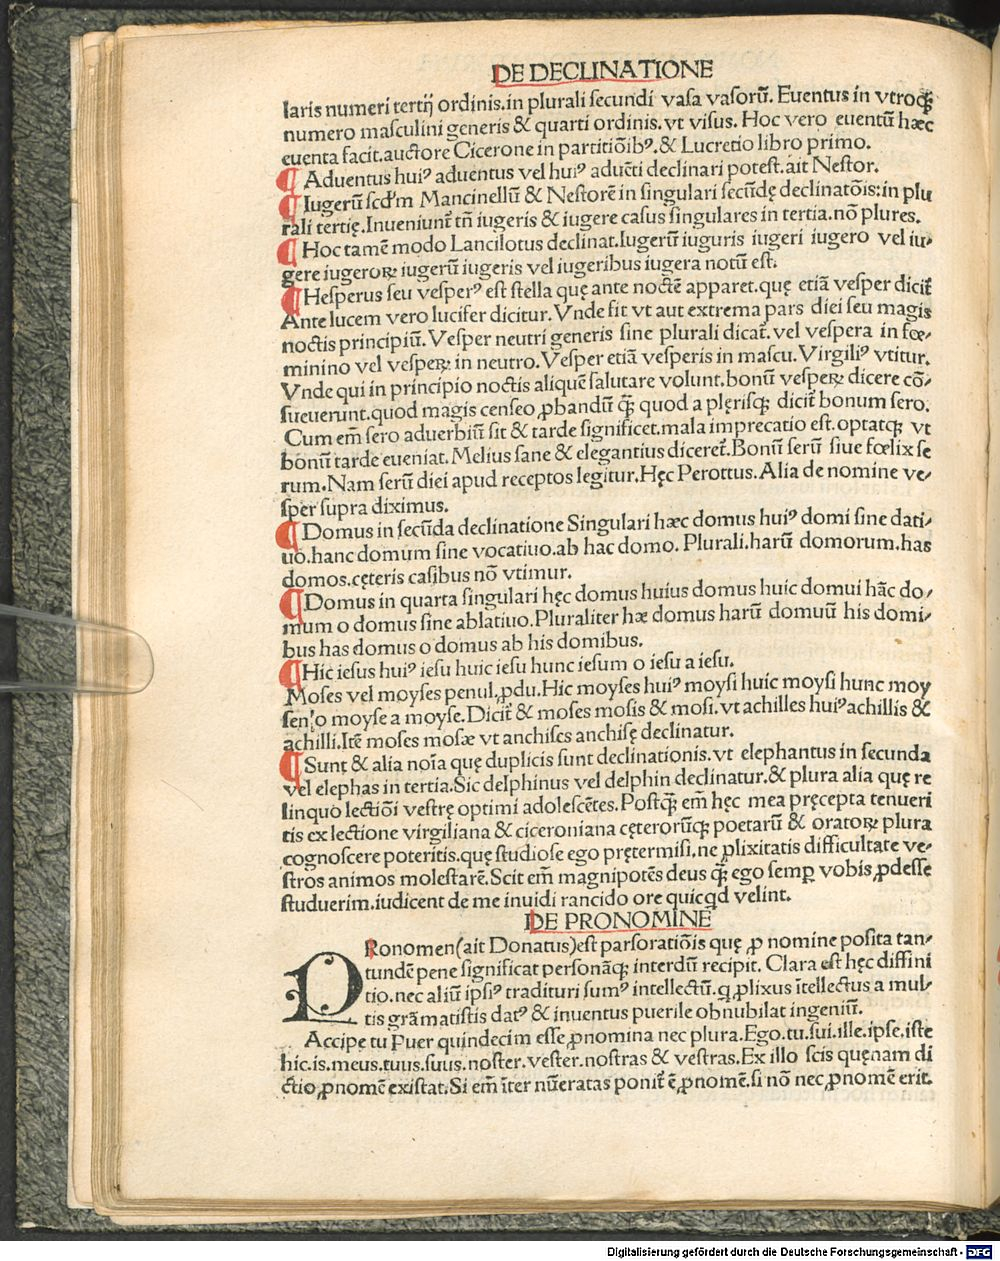 DE DECLINATIONE
laris numeri tertij ordinis.in plurali secundi vasa vasorū. Euentus in vtroqꝫ
numero masculini generis & quarti ordinis.vt visus. Hoc vero euentū hæc
euenta facit.auctore Cicerone in partitiōibꝰ.& Lucretio libro primo.
¶ Aduentus huiꝰ aduentus vel huiꝰ aduēti declinari potest.ait Nestor.
¶ Iugerū scd̄m Mancinellū & Nestorē in singulari secūdę declinatōis:in plu
rali tertię.Inueniunt̄ tn̄ iugeris & iugere casus singulares in tertia.nō plures.
¶ Hoc tamē modo Lancilotus declinat.Iugerū iuguris iugeri iugero vel iu-
gere iugeroꝝ iugerū iugeris vel iugeribus iugera notū est.
¶ Hesperus seu vesperꝰ est stella quę ante noctē apparet.quę etiā vesper dicit̄
Ante lucem vero lucifer dicitur. Vnde fit vt aut extrema pars diei seu magis
noctis principiū. Vesper neutri generis sine plurali dicat̄. vel vespera in fœ-
minino vel vesperꝝ in neutro. Vesper etiā vesperis in mascu. Virgiliꝰ vtitur.
Vnde qui in principio noctis aliquē salutare volunt.bonū vesperꝝ dicere cō-
sueuerunt.quod magis censeo ꝓbandū qꝫ quod a plęrisqꝫ dicit̄ bonum sero.
Cum em̄ sero aduerbiū sit & tarde significet.mala imprecatio est.optatqꝫ vt
bonū tarde eueniat. Melius sane & elegantius diceret̄. Bonū serū siue fœlix se
rum. Nam serū diei apud receptos legitur. Hęc Perottus. Alia de nomine ve-
sper supra diximus.
¶ Domus in secūda declinatione Singulari hæc domus huiꝰ domi sine dati-
uo.hanc domum sine vocatiuo.ab hac domo. Plurali.harū domorum.has
domos.cęteris casibus nō vtimur.
¶ Domus in quarta singulari hęc domus huius domus huic domui hāc do-
mum o domus sine ablatiuo. Pluraliter hæ domus harū domuū his domi-
bus has domus o domus ab his domibus.
¶ Hic iesus huiꝰ iesu huic iesu hunc iesum o iesu a iesu.
Moses vel moyses penul.ꝓdu. Hic moyses huiꝰ moysi huic moysi hunc moy
sen o moyse a moyse. Dicit̄ & moses mosis & mosi.vt achilles huiꝰ achillis &
achilli.Itē moses mosæ vt anchises anchisę declinatur.
¶ Sunt & alia noīa quę duplicis sunt declinationis.vt elephantus in secunda
vel elephas in tertia. Sic delphinus vel delphin declinatur.& plura alia quę re
linquo lectiōi vestrę optimi adolescētes. Postqꝫ em̄ hęc mea pręcepta tenueri
tis ex lectione virgiliana & ciceroniana cęterorūqꝫ poetarū & oratoꝝ plura
cognoscere poteritis.quę studiose ego prętermisi.ne ꝓlixitatis difficultate ve-
stros animos molestarē. Scit em̄ magnipotēs deus qꝫ ego semꝑ vobis ꝓdesse
studuerim.iudicent de me inuidi rancido ore quicqd velint.
DE PRONOMINE
PRonomen(ait Donatus)est pars oratiōis quę ꝓ nomine posita tan-
tundē pene significat personāqꝫ interdū recipit. Clara est hęc diffini
tio.nec aliū ipsiꝰ tradituri sumꝰ intellectū.q ꝓlixus ītellectus a mul-
tis grāmatistis datꝰ & inuentus puerile obnubilat ingeniū.
Accipe tu Puer quindecim esse ꝓnomina nec plura. Ego.tu.sui.ille.ipse.iste
hic.is.meus.tuus.suus.noster.vester.nostras & vestras. Ex illo scis quęnam di
ctio ꝓnomē existat. Si em̄ īter nūeratas ponit̄ ē ꝓnomē.si nō nec ꝓnomē erit.
Digitalisierung gefördert durch die Deutsche Forschungsgemeinschaft - DFG